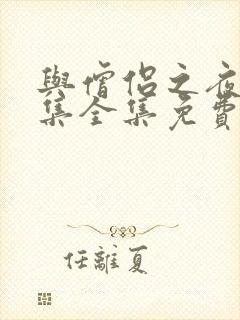 與僧侶之夜
集全集免費
任離夏